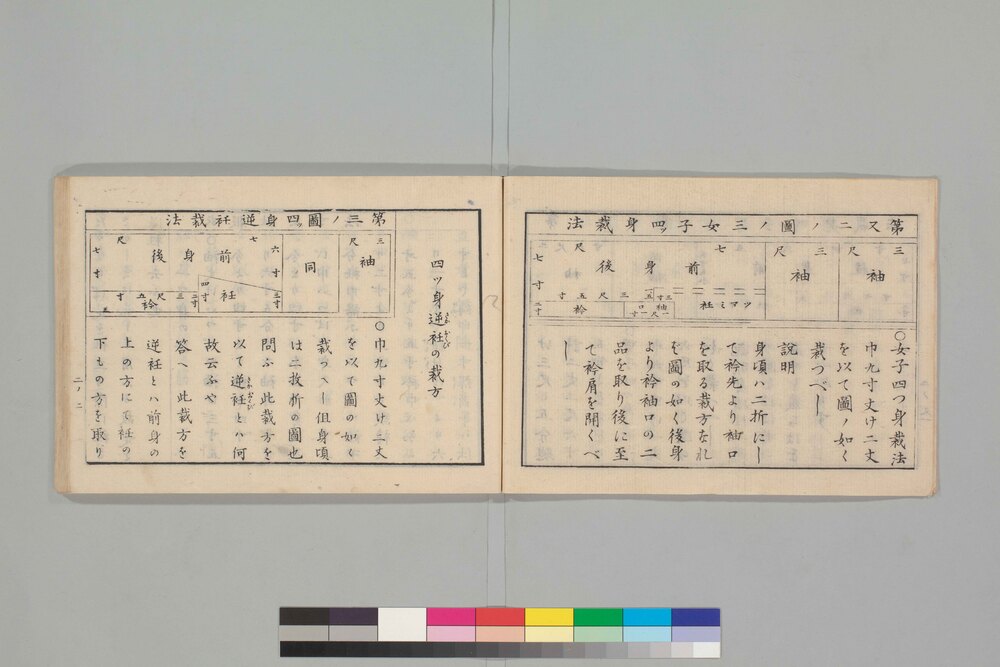 第又二ノ圖ノ三女子四ッ身裁法
三尺 袖
三尺 袖
七尺 前身後
七寸
ツマミ衽
三尺五寸 衿
袖口
一尺一寸
三寸
○女子四つ身裁法
巾九寸丈け二丈
を以て圖ノ如く
裁つべし
説明
身頃ハ二折にし
て衿先より袖口
を取る裁方なれ
ば圖の如く後身
より衿袖口の二
品を取り後に至
て衿肩を開くべ
し
四ッ身逆衽の裁方
第三ノ圖四ッ身逆衽裁法
三尺 袖
同
六寸
七尺 前身後
七寸
四寸 衽 三寸
二寸
三尺五寸 衿
○巾九寸丈け二丈
を以て圖の如く
裁つべし但身頃
は二枚折の圖也
問ふ此裁方を
以て逆衽とハ何
故云ふや
答へ此裁方を
逆衽とハ前身の
上の方にて衽の
下もの方を取り
二ノ二